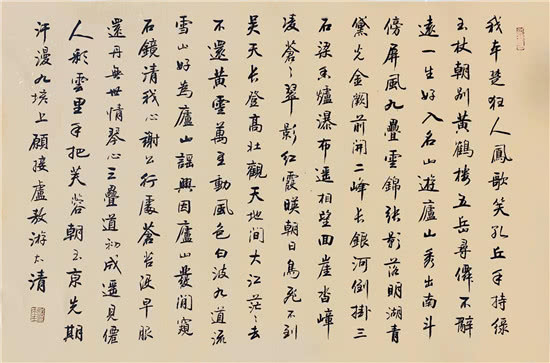 我本楚狂人鳳歌笑孔丘手持綠
玉杖朝別黃鶴樓五岳尋僊不辭
遠一生好入名山遊廬山秀出南斗
傍屏風九疊雲錦張影落明湖青
黛光金闕前開二峰長銀河倒掛三
石梁香爐瀑布遥相望囬崖沓嶂
凌蒼〻翠影紅霞暎朝日鳥飛不到
吳天長登高壯觀天地間大江茫〻去
不還黃雲萬里動風色白波九道流
雪山好為廬山謠興因廬山發閒窺
石鏡清我心謝公行處蒼苔沒早服
還丹無世情琴心三疊道初成遥見僊
人彩雲里手把芙蓉朝玉京先期
汗漫九垓上願接盧敖游太清